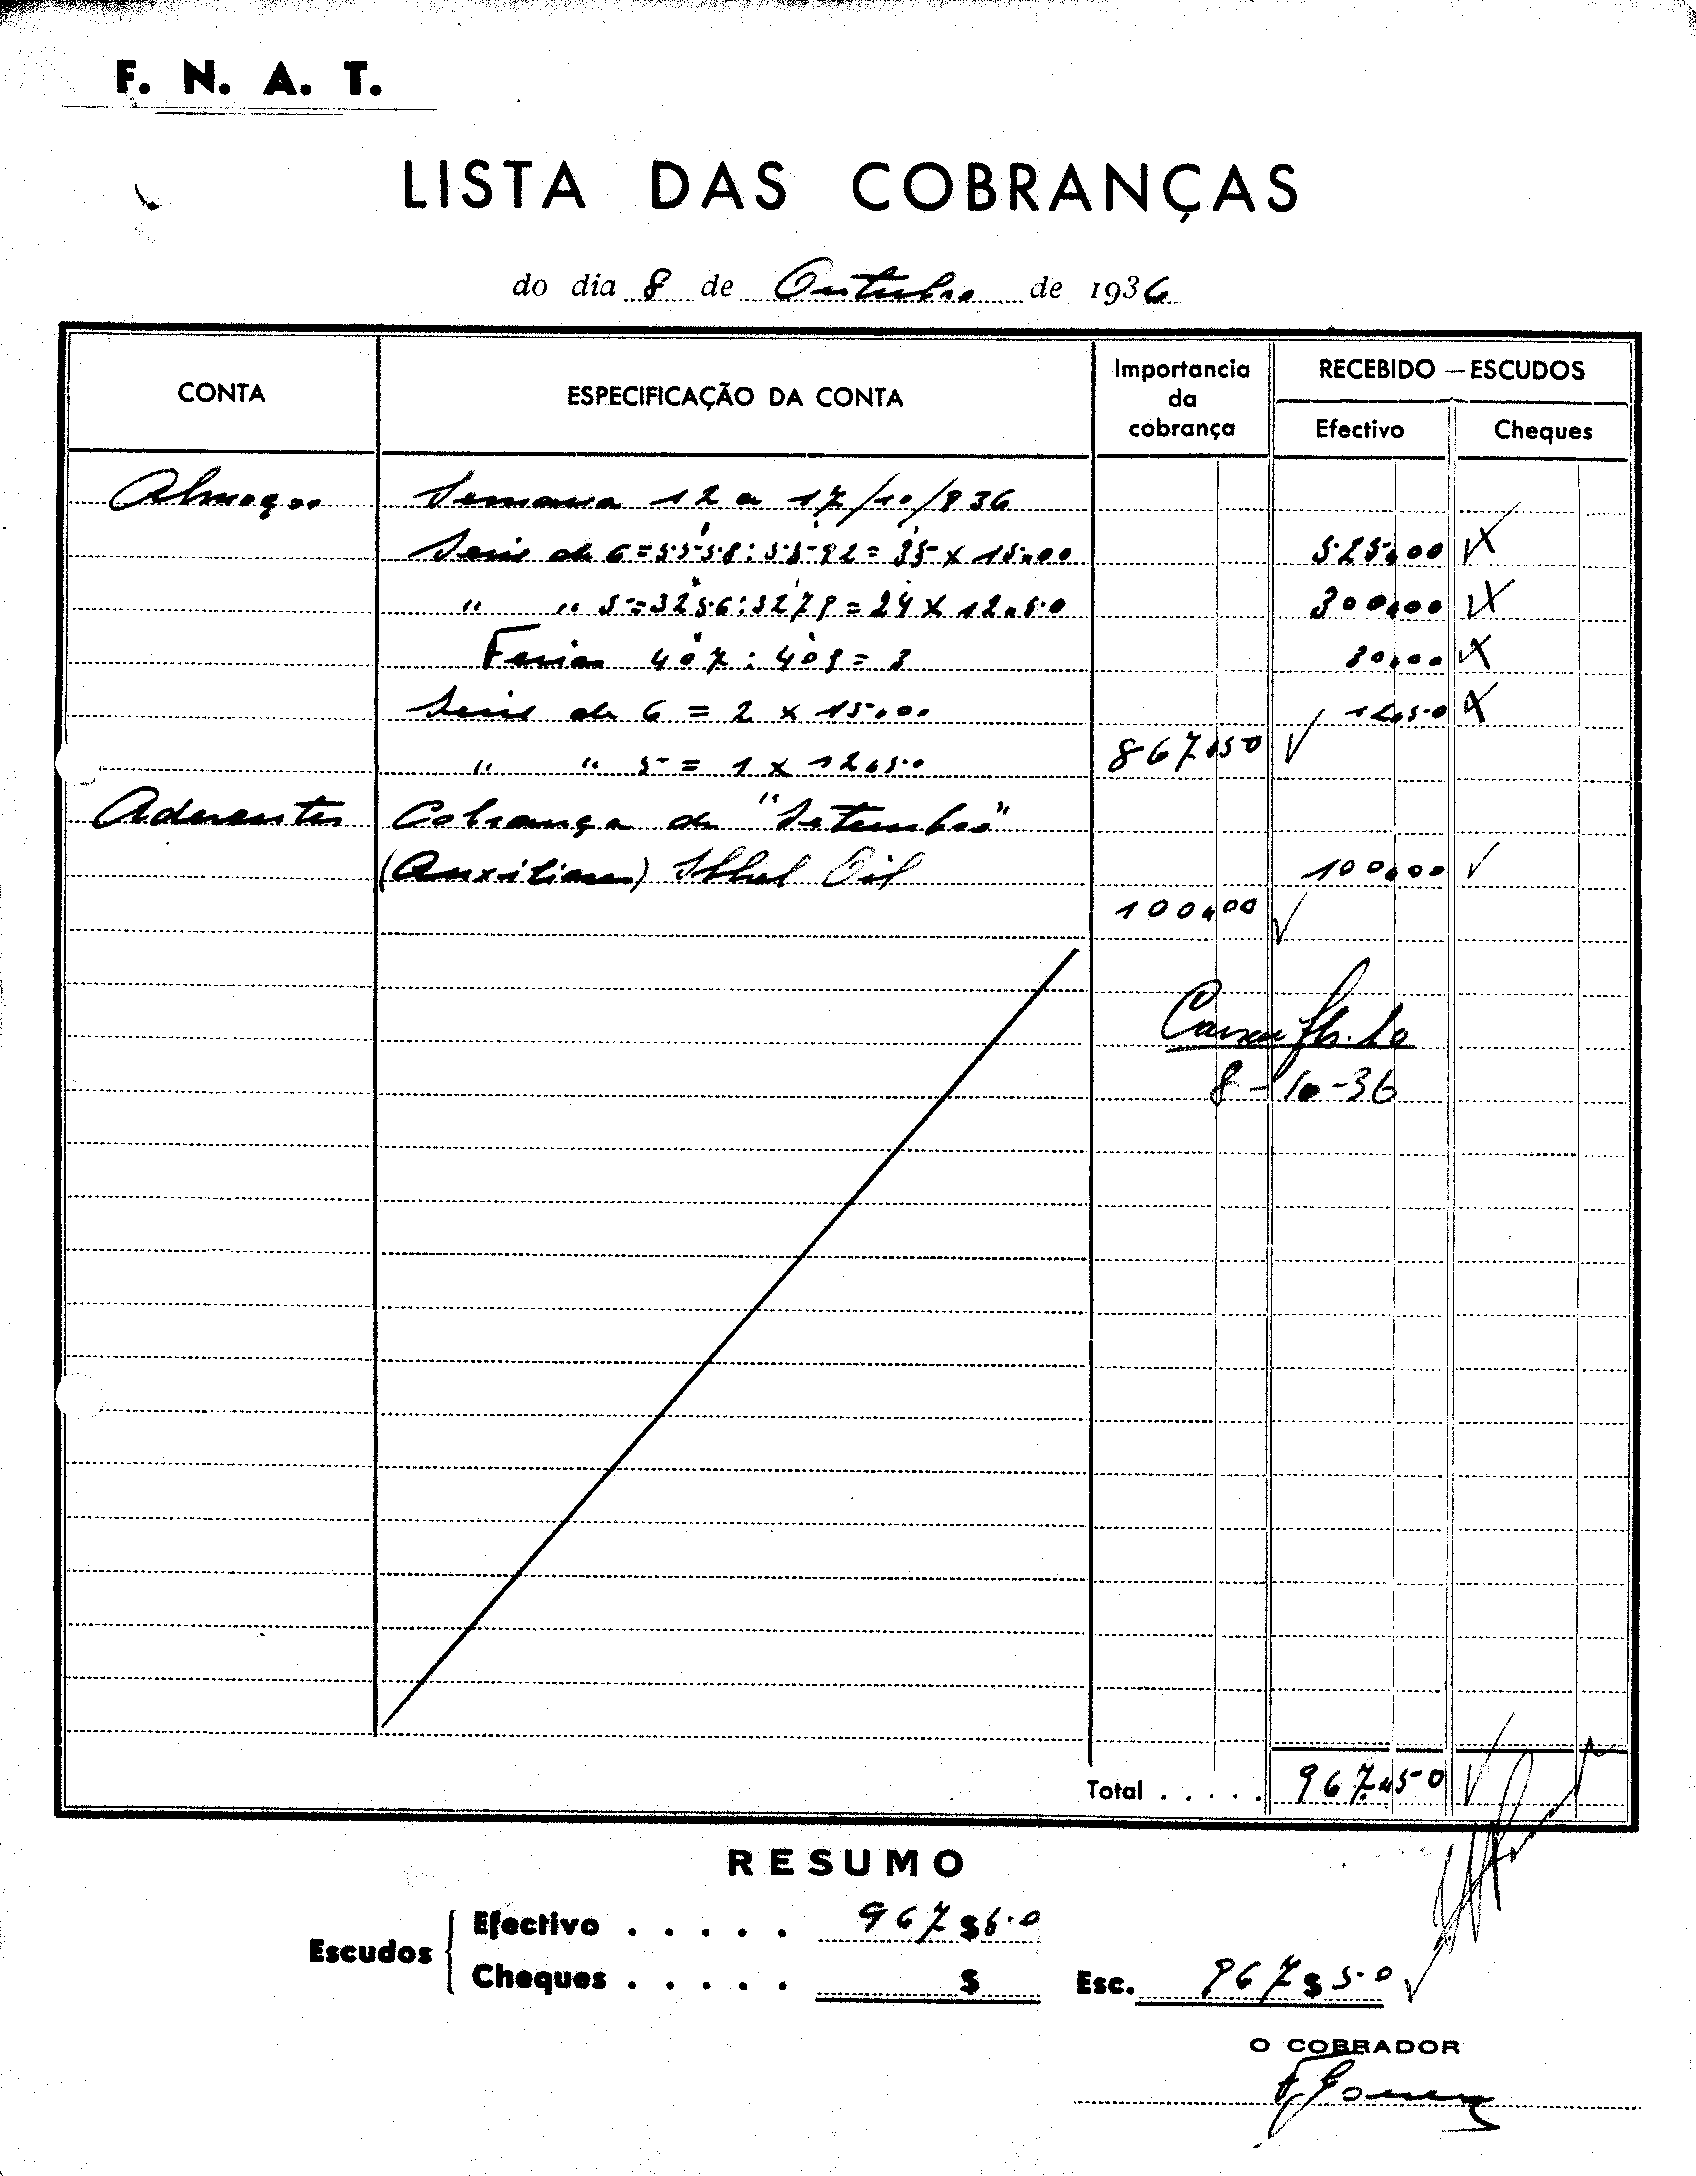 F. N. A. T.
LISTA DAS COBRANÇAS
do dia 8 de Outubro de 1936
CONTA
ESPECIFICAÇÃO DA CONTA
Importancia da cobrança
RECEBIDO — ESCUDOS
Efectivo
Cheques
Almoços Semana 12 a 17/10/936
Serie de 6 = 5558 : 5592 = 35 x 15.00 525.00
" " 5 = 3256 : 3279 = 24 x 12.50 300.00
Ferias 407 : 409 = 3 30.00
Serie de 6 = 2 x 15.00 12.50
" " 5 = 1 x 12.50 867.50
Aderentes Cobrança de "Setembro"
(Auxiliares) Oil 100.00
100.00
Caixa fls. 20
8-10-36
Total . . . . . 967.50
RESUMO
Escudos
Efectivo . . . . . 967$50
Cheques . . . . . $
Esc. 967$50
O COBRADOR
F. Gomes